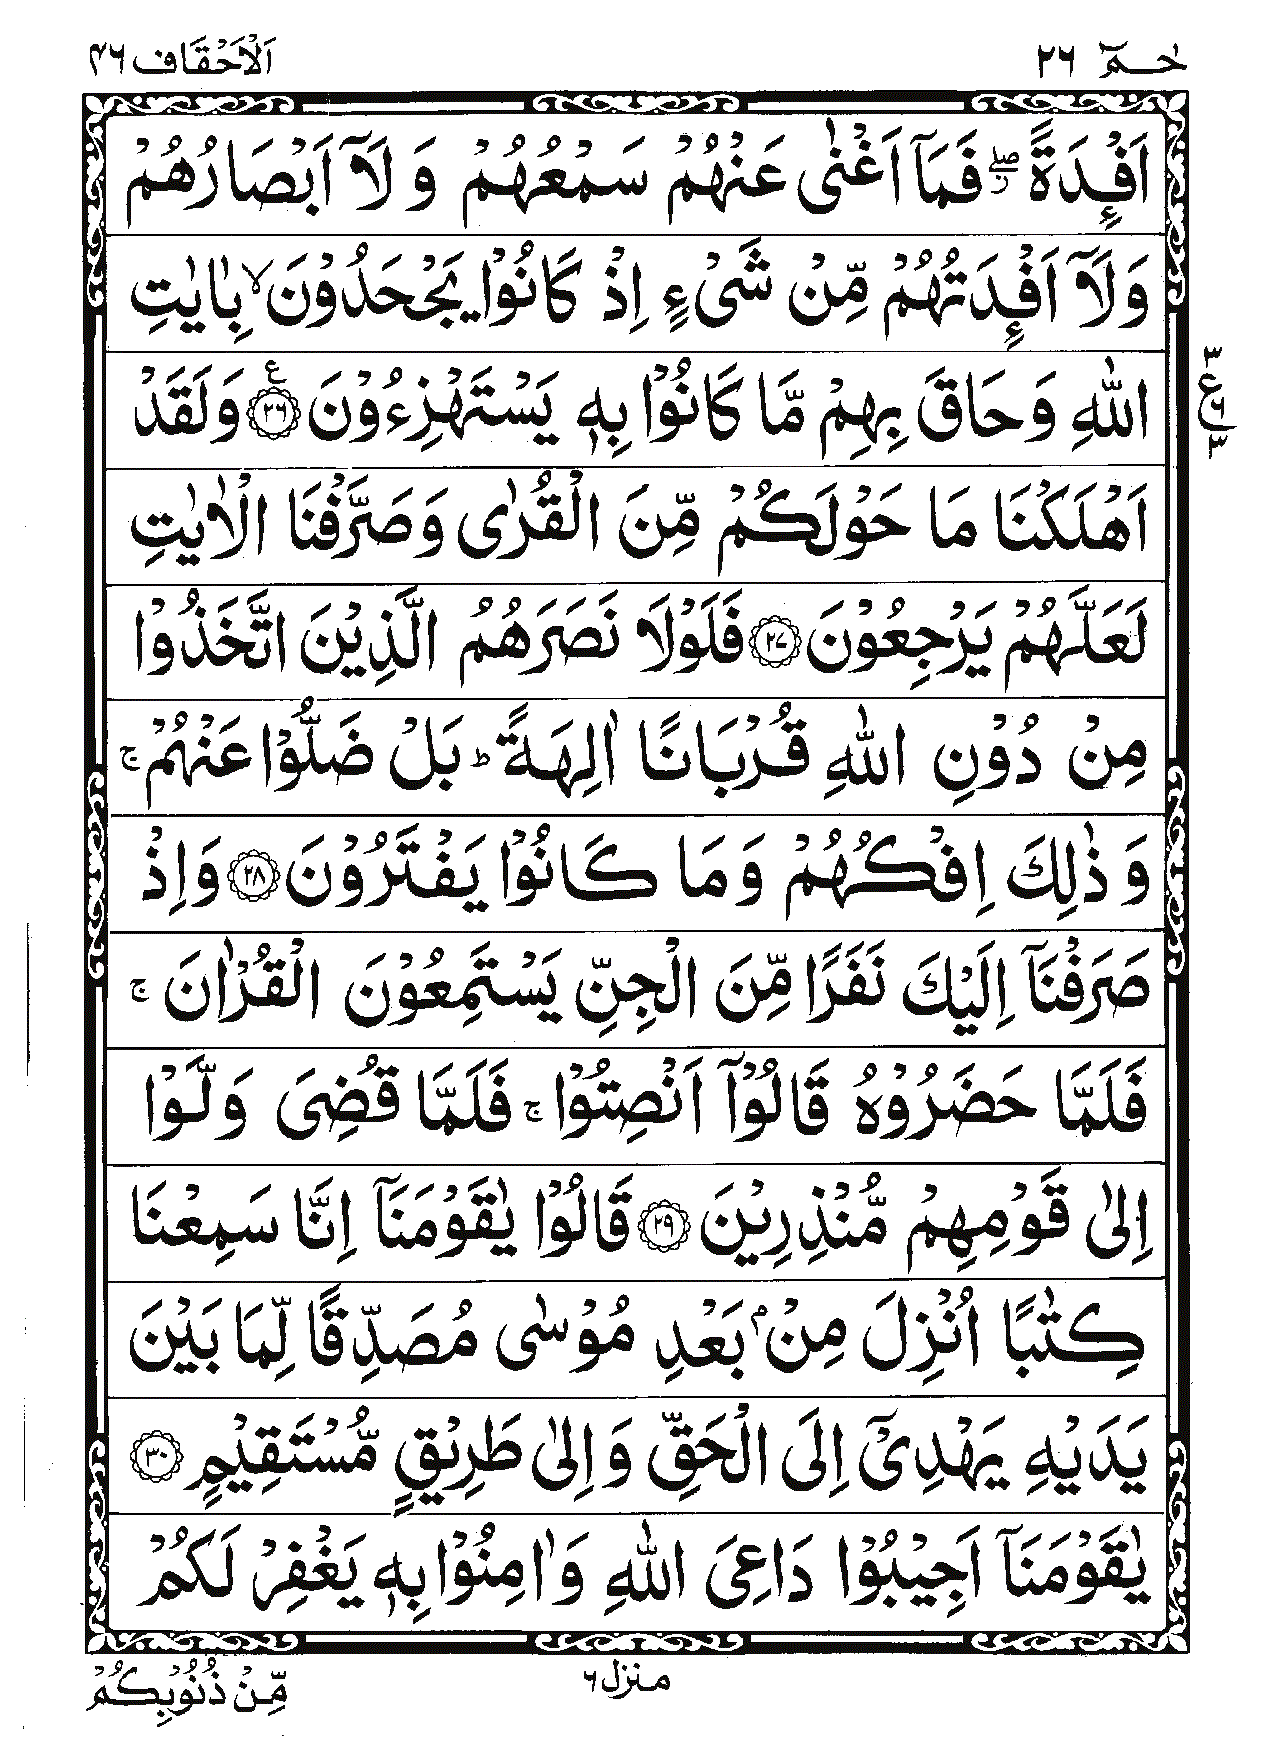 حٰـمٓ ٢٦ اَلْاَحْقَاف ٤٦
اَفْـِٕدَةً ۖز فَمَاۤ اَغْنٰى عَنْهُمْ سَمْعُهُمْ وَ لَاۤ اَبْصَارُهُمْ
وَلَاۤ اَفْـِٕدَتُهُمْ مِّنْ شَیْءٍ اِذْ كَانُوْا یَجْحَدُوْنَ ۙ بِاٰیٰتِ
اللّٰهِ وَحَاقَ بِهِمْ مَّا كَانُوْا بِهٖ یَسْتَهْزِءُوْنَ ۧ ﴿٢٦﴾ وَلَقَدْ
٣ ع ٦ ٣
اَهْلَكْنَا مَا حَوْلَكُمْ مِّنَ الْقُرٰى وَصَرَّفْنَا الْاٰیٰتِ
لَعَلَّهُمْ یَرْجِعُوْنَ ﴿٢٧﴾ فَلَوْلَا نَصَرَهُمُ الَّذِیْنَ اتَّخَذُوْا
مِنْ دُوْنِ اللّٰهِ قُرْبَانًا اٰلِهَةً ؕ بَلْ ضَلُّوْا عَنْهُمْ ۚ
وَ ذٰلِكَ اِفْكُهُمْ وَمَا كَانُوْا یَفْتَرُوْنَ ﴿٢٨﴾ وَاِذْ
صَرَفْنَاۤ اِلَیْكَ نَفَرًا مِّنَ الْجِنِّ یَسْتَمِعُوْنَ الْقُرْاٰنَ ۚ
فَلَمَّا حَضَرُوْهُ قَالُوْۤا اَنْصِتُوْا ۚ فَلَمَّا قُضِیَ وَلَّوْا
اِلٰى قَوْمِهِمْ مُّنْذِرِیْنَ ﴿٢٩﴾ قَالُوْا یٰقَوْمَنَاۤ اِنَّا سَمِعْنَا
كِتٰبًا اُنْزِلَ مِنْۢ بَعْدِ مُوْسٰى مُصَدِّقًا لِّمَا بَیْنَ
یَدَیْهِ یَهْدِیْۤ اِلَى الْحَقِّ وَ اِلٰى طَرِیْقٍ مُّسْتَقِیْمٍ ﴿٣٠﴾
یٰقَوْمَنَاۤ اَجِیْبُوْا دَاعِیَ اللّٰهِ وَاٰمِنُوْا بِهٖ یَغْفِرْ لَكُمْ
منزل ٦ مِّنْ ذُنُوْبِكُمْ